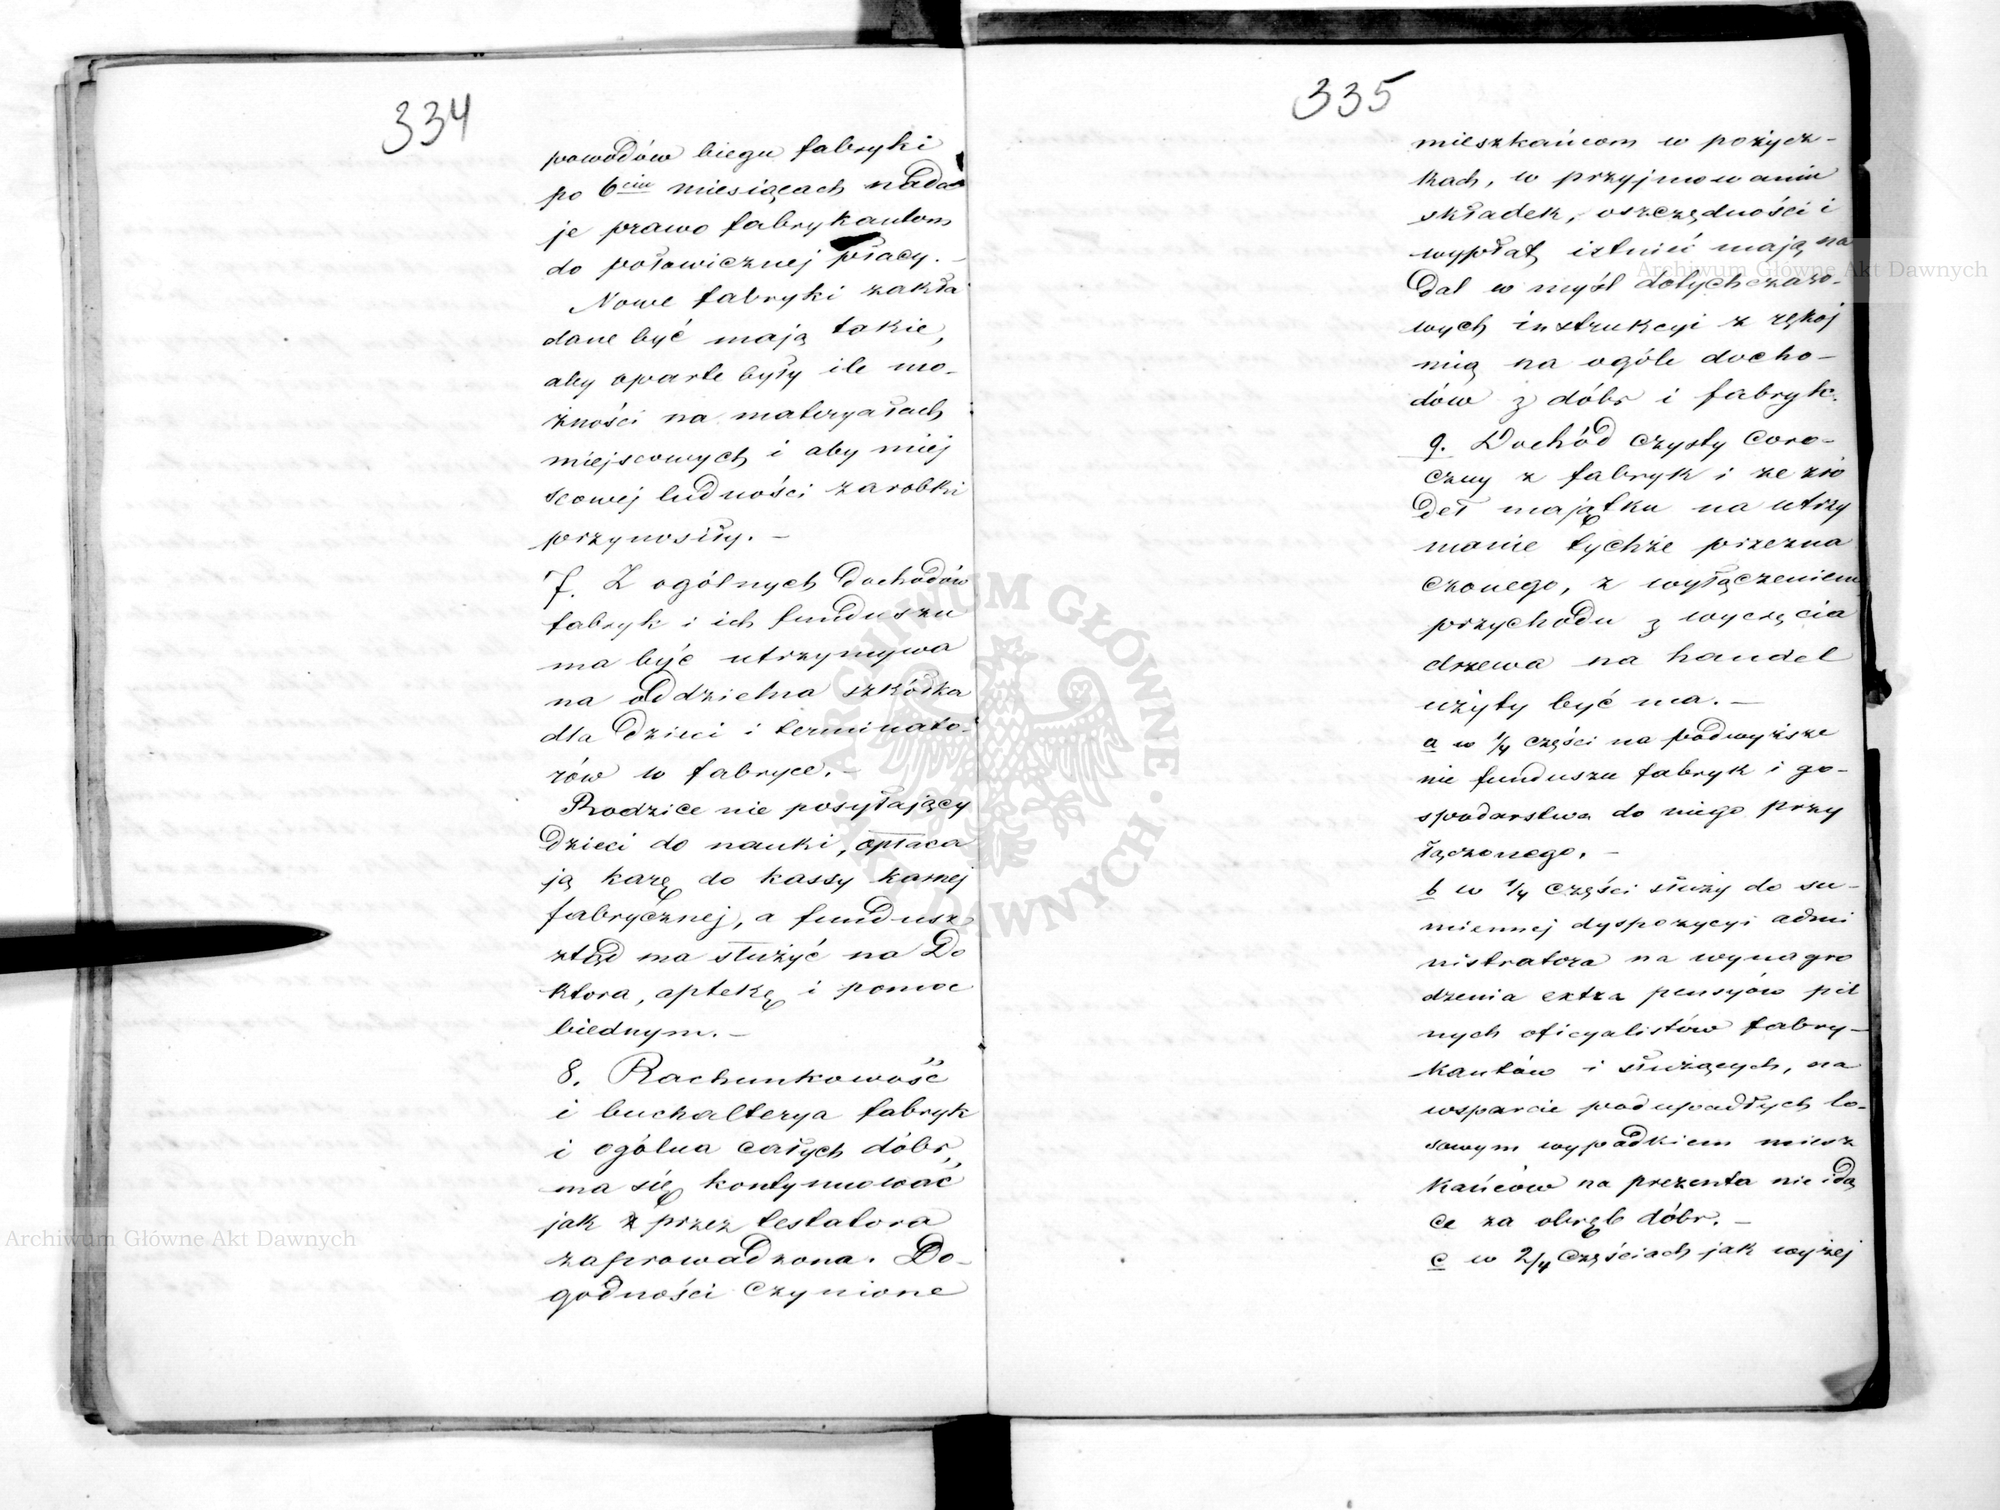 334
powodów biegu fabryki
po 6ciu miesiącach nada
je prawo fabrykantom
do połowicznej płacy. –
Nowe fabryki zakła
dane być mają takie,
aby oparte były ile mo-
żności na materyałach
miejscowych i aby miej
scowej ludności zarobki
przynosiły. –
7. Z ogólnych dochodów
fabryk i ich funduszu
ma być utrzymywa
na oddzielna szkółka
dla dzieci i terminato-
rów w fabryce. –
Rodzice nie posyłający
dzieci do nauki, opłaca
ją karę do kassy karnej
fabrycznej, a fundusz
ztąd ma służyć na Do
ktora, aptekę i pomoc
biednym. –
8. Rachunkowość
i buchalterya fabryk
i ogólna całych dóbr,
ma się kontynuować
jak z przez testatora
zaprowadzona. Do-
godności czynione
335
mieszkańcom w pożycz-
kach, w przyjmowaniu
składek, oszczędności i
wypłat istnieć mają na
dal w myśl dotychczaso-
wych instrukcyi z rękoj
mią na ogóle docho-
dów z dóbr i fabryk.
9. Dochód czysty coro-
czny z fabryk i ze źró
deł majątku na utrzy
manie tychże przezna
czonego, z wyłączeniem
przychodu z wycięcia
drzewa na handel
użyty być ma. –
a w 1/4 części na podwyższe
nie funduszu fabryk i go-
spodarstwa do niego przy
łączonego. –
b w 1/4 części służy do su-
miennej dyspozycyi admi
nistratora na wynagro
dzenia extra pensyów pil
nych oficyalistów fabry-
kantów i służących, na
wsparcie podupadłych lo-
sowym wypadkiem miesz
kańców na prezenta nie idą
ce za obręb dóbr. –
c w 2/4 częściach jak wyżej
Archiwum Główne Akt Dawnych
Archiwum Główne Akt Dawnych
ARCHIWUM GŁÓWNE AKT DAWNYCH